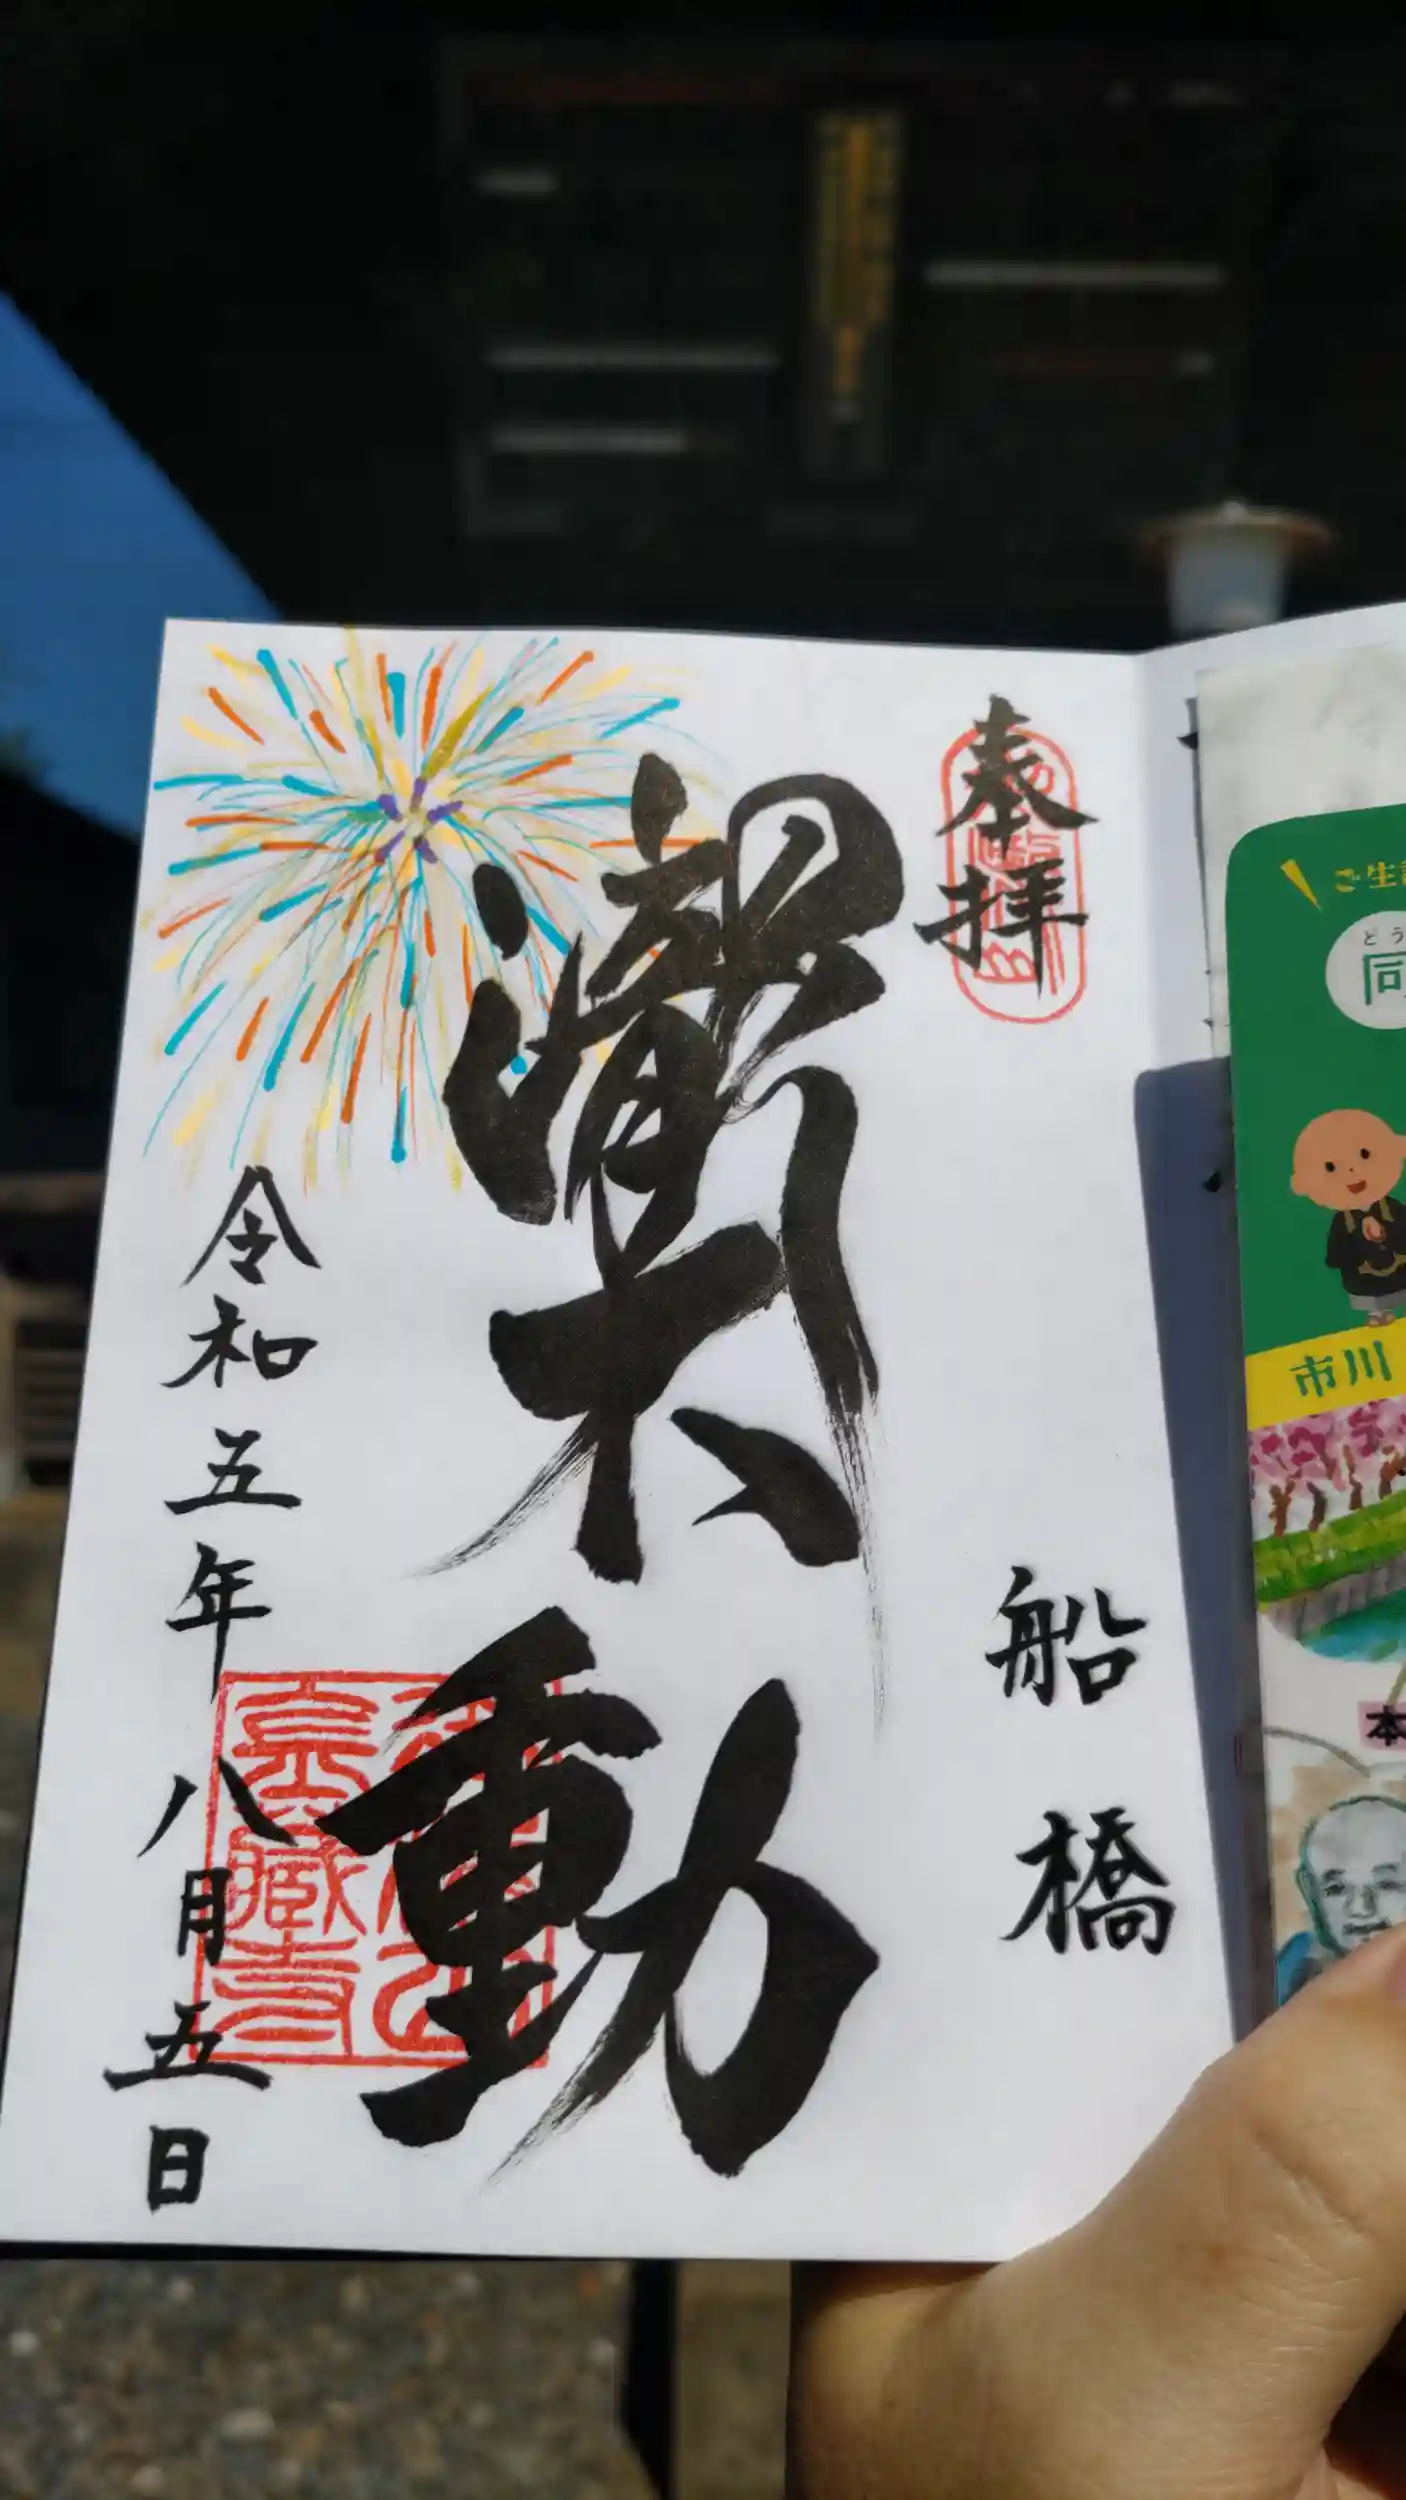 奉拝
船橋
瀧不動
令和五年八月五日
ご生
どう
市川
本